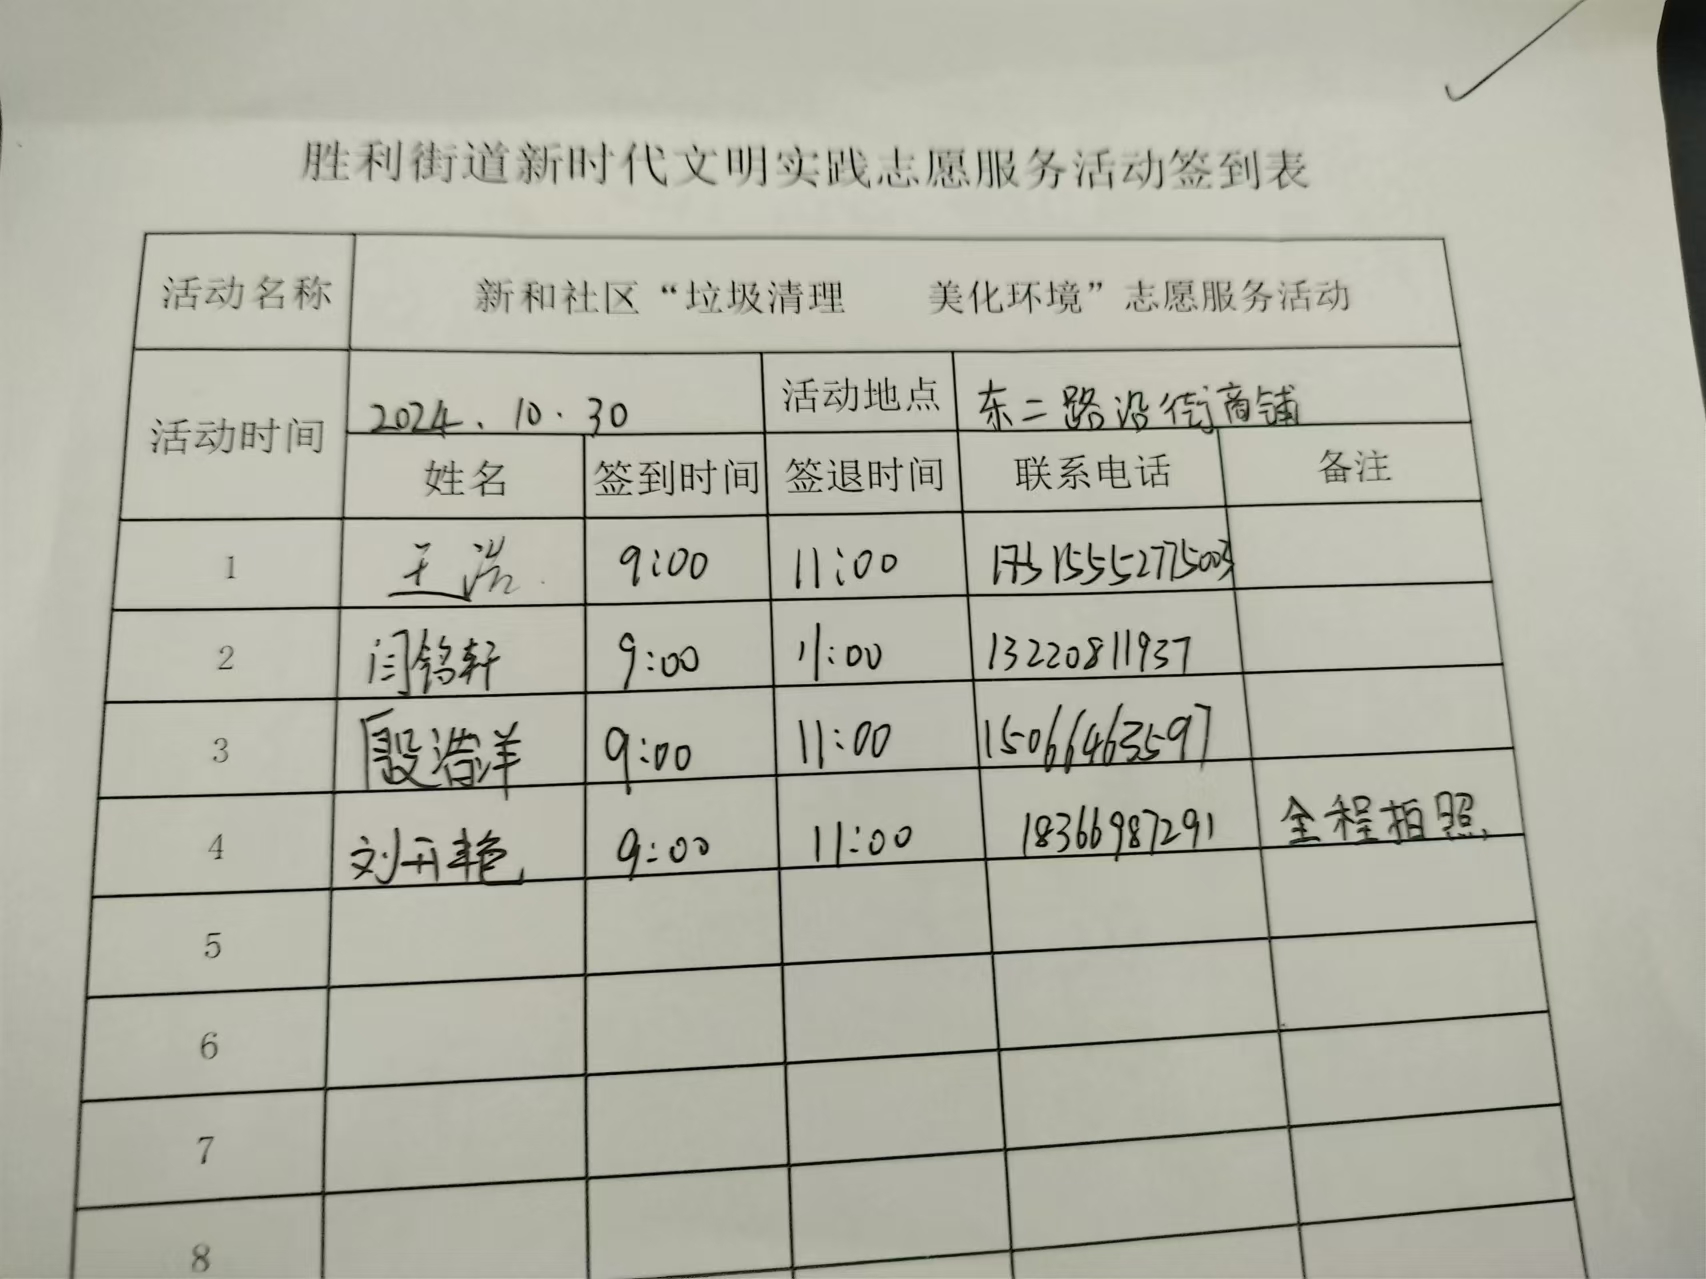 胜利街道新时代文明实践志愿服务活动签到表
活动名称 新和社区“垃圾清理 美化环境”志愿服务活动
活动时间 2024.10.30 活动地点 东二路沿街商铺
姓名 签到时间 签退时间 联系电话 备注
1 王浩 9:00 11:00
2 闫铭轩 9:00 11:00 13220811937
3 殷浩洋 9:00 11:00 15066463597
4 刘开艳 9:00 11:00 18366987291 全程拍照
5
6
7
8